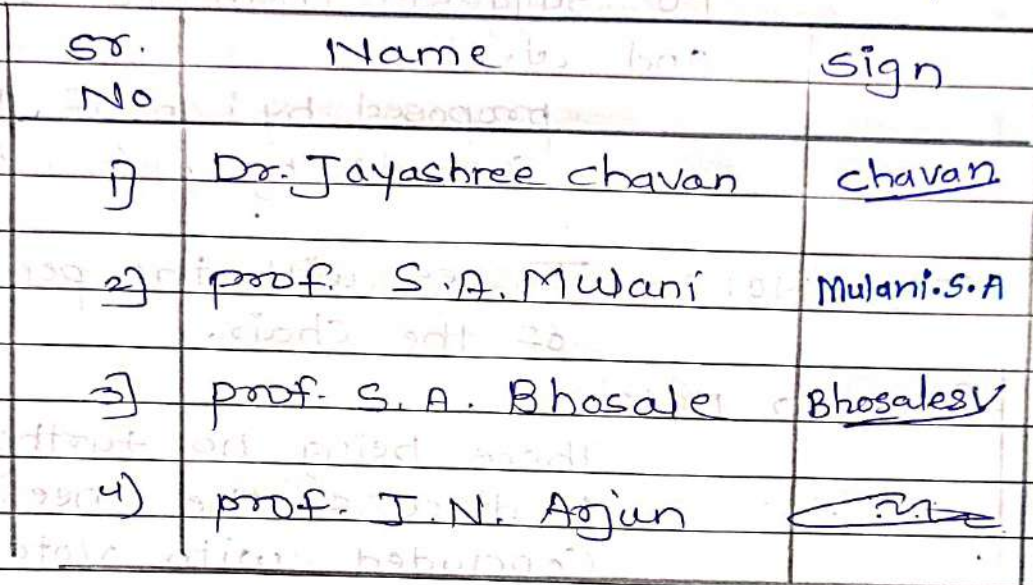 Sr. Name Sign
No
1) Dr. Jayashree Chavan Chavan
2] prof. S.A. Mulani Mulani.S.A
3] prof. S. A. Bhosale Bhosalesy
4) prof. J. N. Arjun